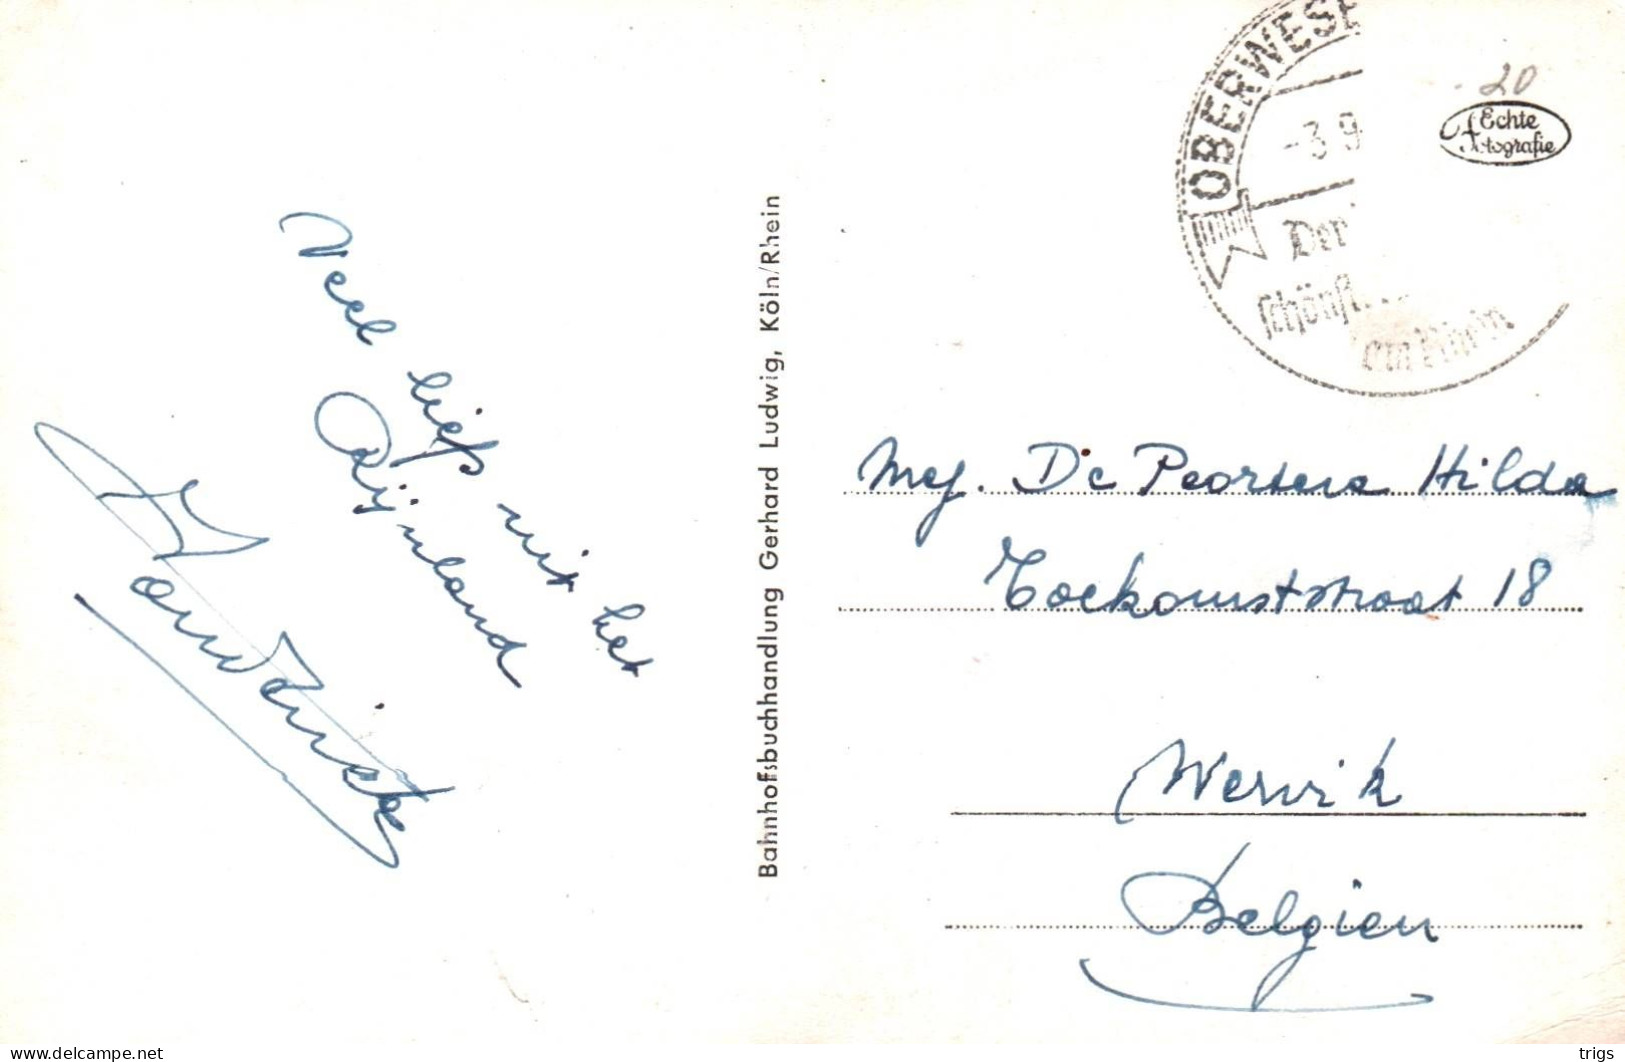 Veel liefs uit het
Rijnland
Bahnhofsbuchhandlung Gerhard Ludwig, Köln/Rhein
OBERWESE
-3.9
Der
schönst
am Rhein
- 20
Echte
fotografie
Mej. De Peortere Hilda
Toekomststraat 18
Wervik
Belgien
delcampe.net
trigs